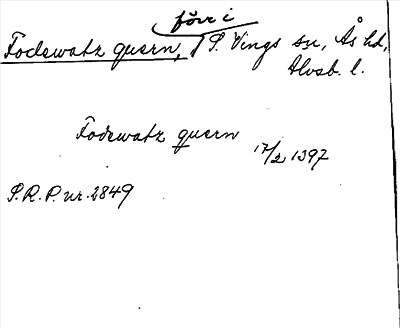 förr i
Fodewatz quern, S. Vings sn, Ås hd,
Älvsb. l.
Fodewatz quern
17/2 1397
S.R.P. nr. 2849